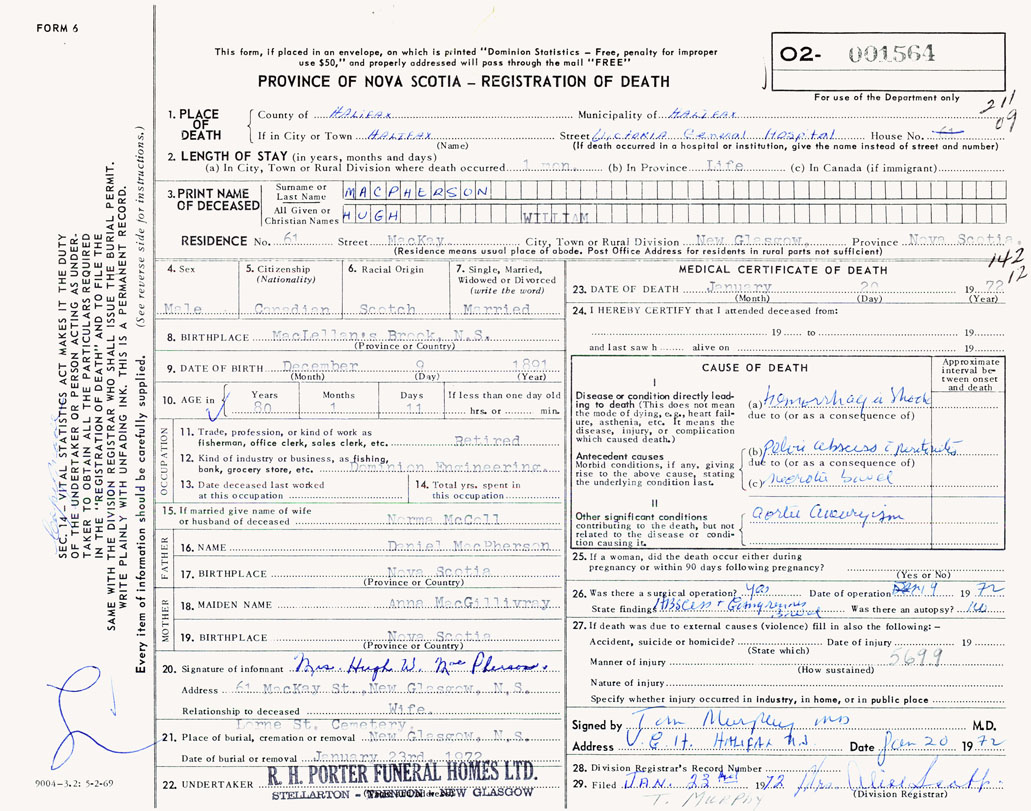 FORM 6
This form, if placed in an envelope, on which is printed "Dominion Statistics – Free, penalty for improper
use $50," and properly addressed will pass through the mail "FREE"
PROVINCE OF NOVA SCOTIA – REGISTRATION OF DEATH
O2- 001564
For use of the Department only
211
09
1. PLACE OF DEATH
County of HALIFAX Municipality of HALIFAX
If in City or Town HALIFAX Street Victoria General Hospital House No. 61
(Name) (If death occurred in a hospital or institution, give the name instead of street and number)
2. LENGTH OF STAY (in years, months and days)
(a) In City, Town or Rural Division where death occurred 1 mon. (b) In Province Life (c) In Canada (if immigrant)
3. PRINT NAME OF DECEASED
Surname or Last Name MACPHERSON
All Given or Christian Names HUGH WILLIAM
RESIDENCE No. 61 Street MacKay City, Town or Rural Division New Glasgow, Province Nova Scotia.
(Residence means usual place of abode. Post Office Address for residents in rural parts not sufficient)
142
12
4. Sex
Male
5. Citizenship (Nationality)
Canadian
6. Racial Origin
Scotch
7. Single, Married, Widowed or Divorced (write the word)
Married
8. BIRTHPLACE MacLellan's Brook, N.S.
(Province or Country)
9. DATE OF BIRTH December 9 1891
(Month) (Day) (Year)
10. AGE in Years Months Days If less than one day old
80 1 11 hrs. or min.
OCCUPATION
11. Trade, profession, or kind of work as fisherman, office clerk, sales clerk, etc. Retired
12. Kind of industry or business, as fishing, bank, grocery store, etc. Dominion Engineering.
13. Date deceased last worked at this occupation
14. Total yrs. spent in this occupation
15. If married give name of wife or husband of deceased Norma McColl
FATHER
16. NAME Daniel MacPherson
17. BIRTHPLACE Nova Scotia
(Province or Country)
MOTHER
18. MAIDEN NAME Anna MacGillivray
19. BIRTHPLACE Nova Scotia
(Province or Country)
20. Signature of informant Mrs. Hugh W. MacPherson.
Address 61 MacKay St., New Glasgow, N.S.
Relationship to deceased Wife.
Lorne St. Cemetery,
21. Place of burial, cremation or removal New Glasgow, N.S.
Date of burial or removal January 23rd, 1972
22. UNDERTAKER R. H. PORTER FUNERAL HOMES LTD.
STELLARTON - TRENTON - NEW GLASGOW
MEDICAL CERTIFICATE OF DEATH
23. DATE OF DEATH January 20 1972
(Month) (Day) (Year)
24. I HEREBY CERTIFY that I attended deceased from:
19 to 19
and last saw h alive on 19
CAUSE OF DEATH
Approximate interval between onset and death
I
Disease or condition directly leading to death (This does not mean the mode of dying, e.g., heart failure, asthenia, etc. It means the disease, injury, or complication which caused death.)
(a) Hemorrhagic Shock
due to (or as a consequence of)
Antecedent causes
Morbid conditions, if any, giving rise to the above cause, stating the underlying condition last.
(b) Pelvic abscess & peritonitis
due to (or as a consequence of)
(c) necrotic bowel
II
Other significant conditions contributing to the death, but not related to the disease or condition causing it.
aortic aneurysm
25. If a woman, did the death occur either during pregnancy or within 90 days following pregnancy?
(Yes or No)
26. Was there a surgical operation? Yes Date of operation Jan 9 1972
State findings Abscess + Gangrenous bowel Was there an autopsy? No
27. If death was due to external causes (violence) fill in also the following: –
Accident, suicide or homicide? Date of injury 19
(State which)
Manner of injury 5699
(How sustained)
Nature of injury
Specify whether injury occurred in industry, in home, or in public place
Signed by Tom Murphy MD M.D.
Address V.G.H. HALIFAX N.S. Date Jan 20 1972
28. Division Registrar's Record Number
29. Filed JAN. 23 1972 Mrs.
(Division Registrar)
T. MURPHY
SEC. 14 – VITAL STATISTICS ACT MAKES IT THE DUTY
OF THE UNDERTAKER OR PERSON ACTING AS UNDER-
TAKER TO OBTAIN ALL THE PARTICULARS REQUIRED
IN THE "REGISTRATION OF DEATH" AND TO FILE THE
SAME WITH THE DIVISION REGISTRAR WHO SHALL ISSUE THE BURIAL PERMIT.
WRITE PLAINLY WITH UNFADING INK. THIS IS A PERMANENT RECORD.
Every item of information should be carefully supplied. (See reverse side for instructions.)
9004–3.2: 5-2-69